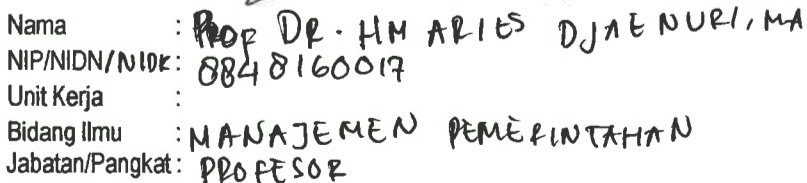 Nama : PROF DR. HM ARIES DJAENURI, MA
NIP/NIDN/NIDK: 8848160017
Unit Kerja :
Bidang Ilmu : MANAJEMEN PEMERINTAHAN
Jabatan/Pangkat: PROFESOR